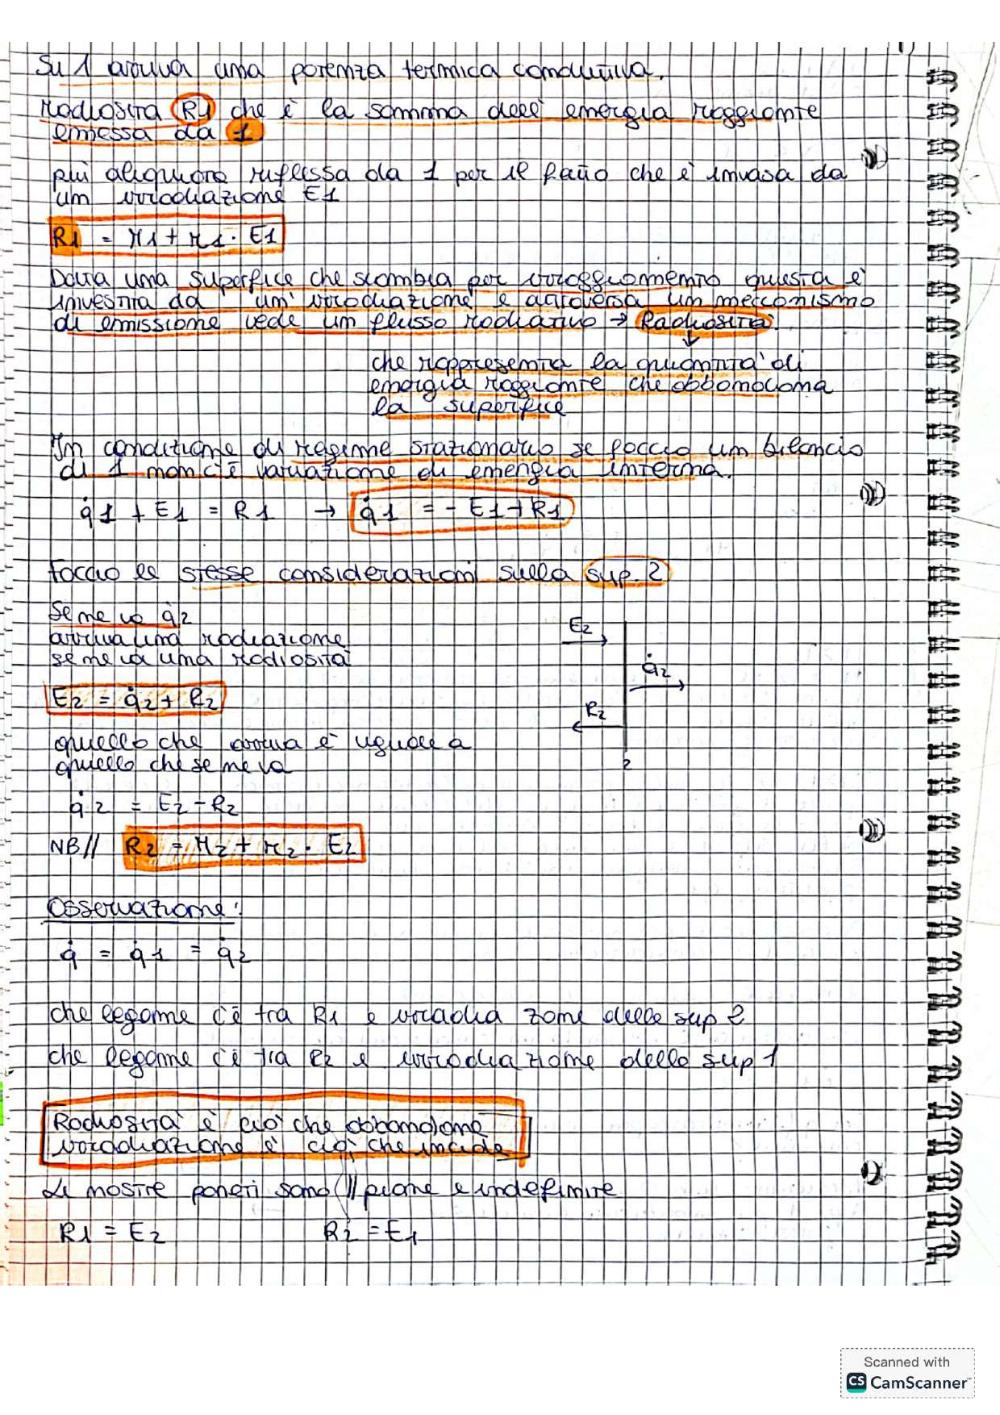 Su 1 arriva una potenza termica conduttiva.
radiosità R1 che è la somma dell' energia raggiante
emessa da 1
più aliquota riflessa da 1 per il fatto che è invasa da
un irradiazione E1
R1 = M1 + r1 · E1
Data una superfice che scambia per irraggiamento questa è
investita da un' irradiazione e attraversa un meccanismo
di emissione vede un flusso radiativo → Radiosità
che rappresenta la quantità di
energia raggiante che abbandona
la superfice
In condizione di regime stazionario se faccio un bilancio
di 1 non c'è variazione di energia interna.
q̇1 + E1 = R1 → q̇1 = - E1 + R1
faccio le stesse considerazioni sulla sup. 2
Se ne va q̇2
arriva una radiazione
se ne va una radiosità
E2
q̇2
R2
2
E2 = q̇2 + R2
quello che arriva è uguale a
quello che se ne va
q̇2 = E2 - R2
NB// R2 = M2 + r2 · E2
Osservazione:
q̇ = q̇1 = q̇2
che legame c'è tra R1 e irradia zione della sup 2
che legame c'è tra R2 e irradia zione della sup 1
Radiosità è ciò che abbandona
irradiazione è ciò che incide
Le nostre pareti sono // piane e indefinite
R1 = E2 R2 = E1
Scanned with
CS CamScanner